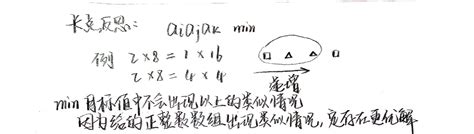 卡壳反思： aiajak min
例 2×8=1×16
2×8=4×4
递增
min目标值中不会出现以上的类似情况
因为给的正整数数组出现类似情况，定存在更优解